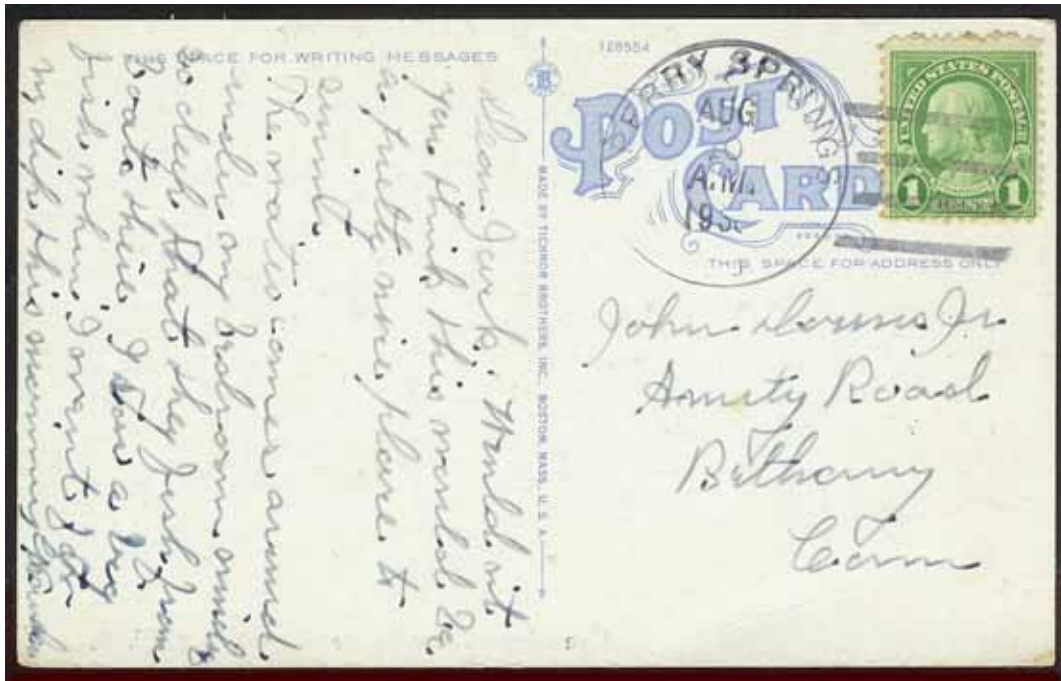 THIS SPACE FOR WRITING MESSAGES
Dear Jack. Would nt
you think this would be
a pretty nice place to
The water comes around
under my bedroom window
so deep that they fish from
boats there. I saw a big
fish when I went for
my dip this morning
MADE BY TICHNOR BROTHERS, INC. BOSTON, MASS. U. S. A.
128554
POST CARD
RRY SPRINGS
AUG
A.M.
193
UNITED STATES POSTAGE
1 CENT 1
THIS SPACE FOR ADDRESS ONLY
John Jr.
Amity Road
Bethany
Conn